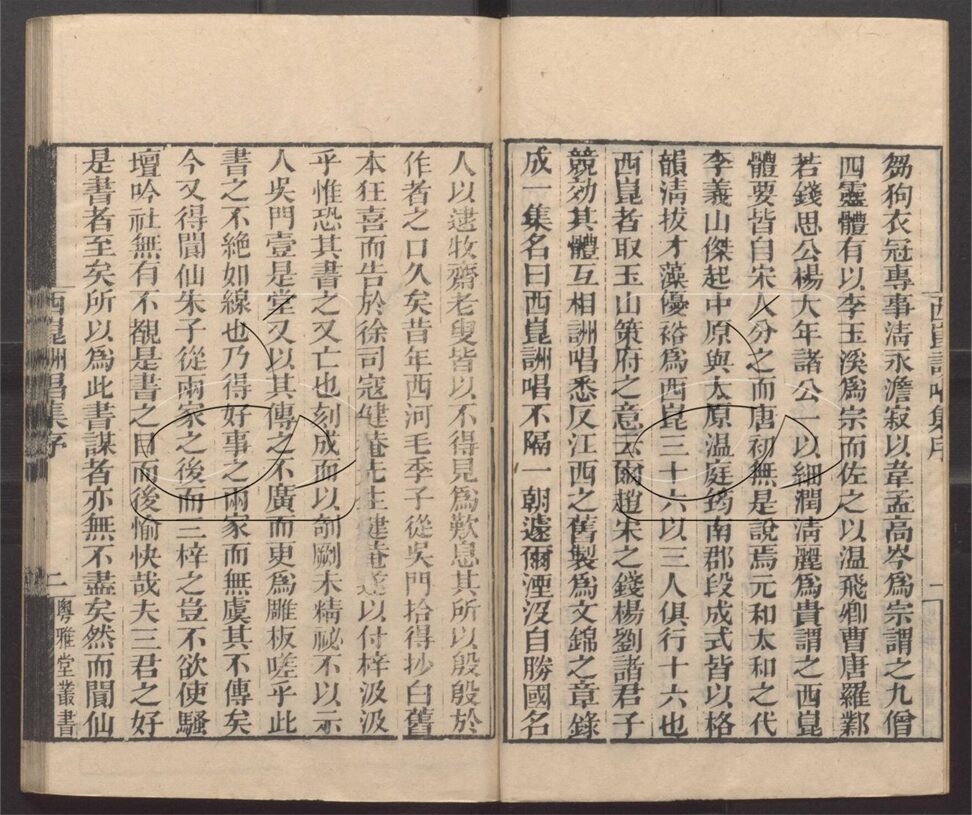 芻狗衣冠專事淸永澹寂以韋孟高岑爲宗謂之九僧
四靈體有以李玉溪爲宗而佐之以温飛卿曹唐羅鄴
若錢思公楊大年諸公一以細潤淸麗爲貴謂之西崑
體要皆自宋人分之而唐初無是說焉元和太和之代
李義山傑起中原與太原温庭筠南郡段成式皆以格
韻淸拔才藻優裕爲西崑三十六以三人俱行十六也
西崑者取玉山策府之意云爾趙宋之錢楊劉諸君子
競効其體互相詶唱悉反江西之舊製爲文錦之章錄
成一集名曰西崑詶唱不隔一朝遽爾湮沒自勝國名
人以逮牧齋老叟皆以不得見爲歎息其所以殷殷於
作者之口久矣昔年西河毛季子從吳門拾得抄白舊
本狂喜而告於徐司寇健菴先生健菴遂以付梓汲汲
乎惟恐其書之又亡也刻成而以剞劂未精祕不以示
人吳門壹是堂又以其傳之不廣而更爲雕板嗟乎此
書之不絶如線也乃得好事之兩家而無虞其不傳矣
今又得聞仙朱子從兩家之後而三梓之豈不欲使騷
壇吟社無有不覩是書之目而後愉快哉夫三君之好
是書者至矣所以爲此書謀者亦無不盡矣然而聞仙
西崑詶唱集序
二
粵雅堂叢書